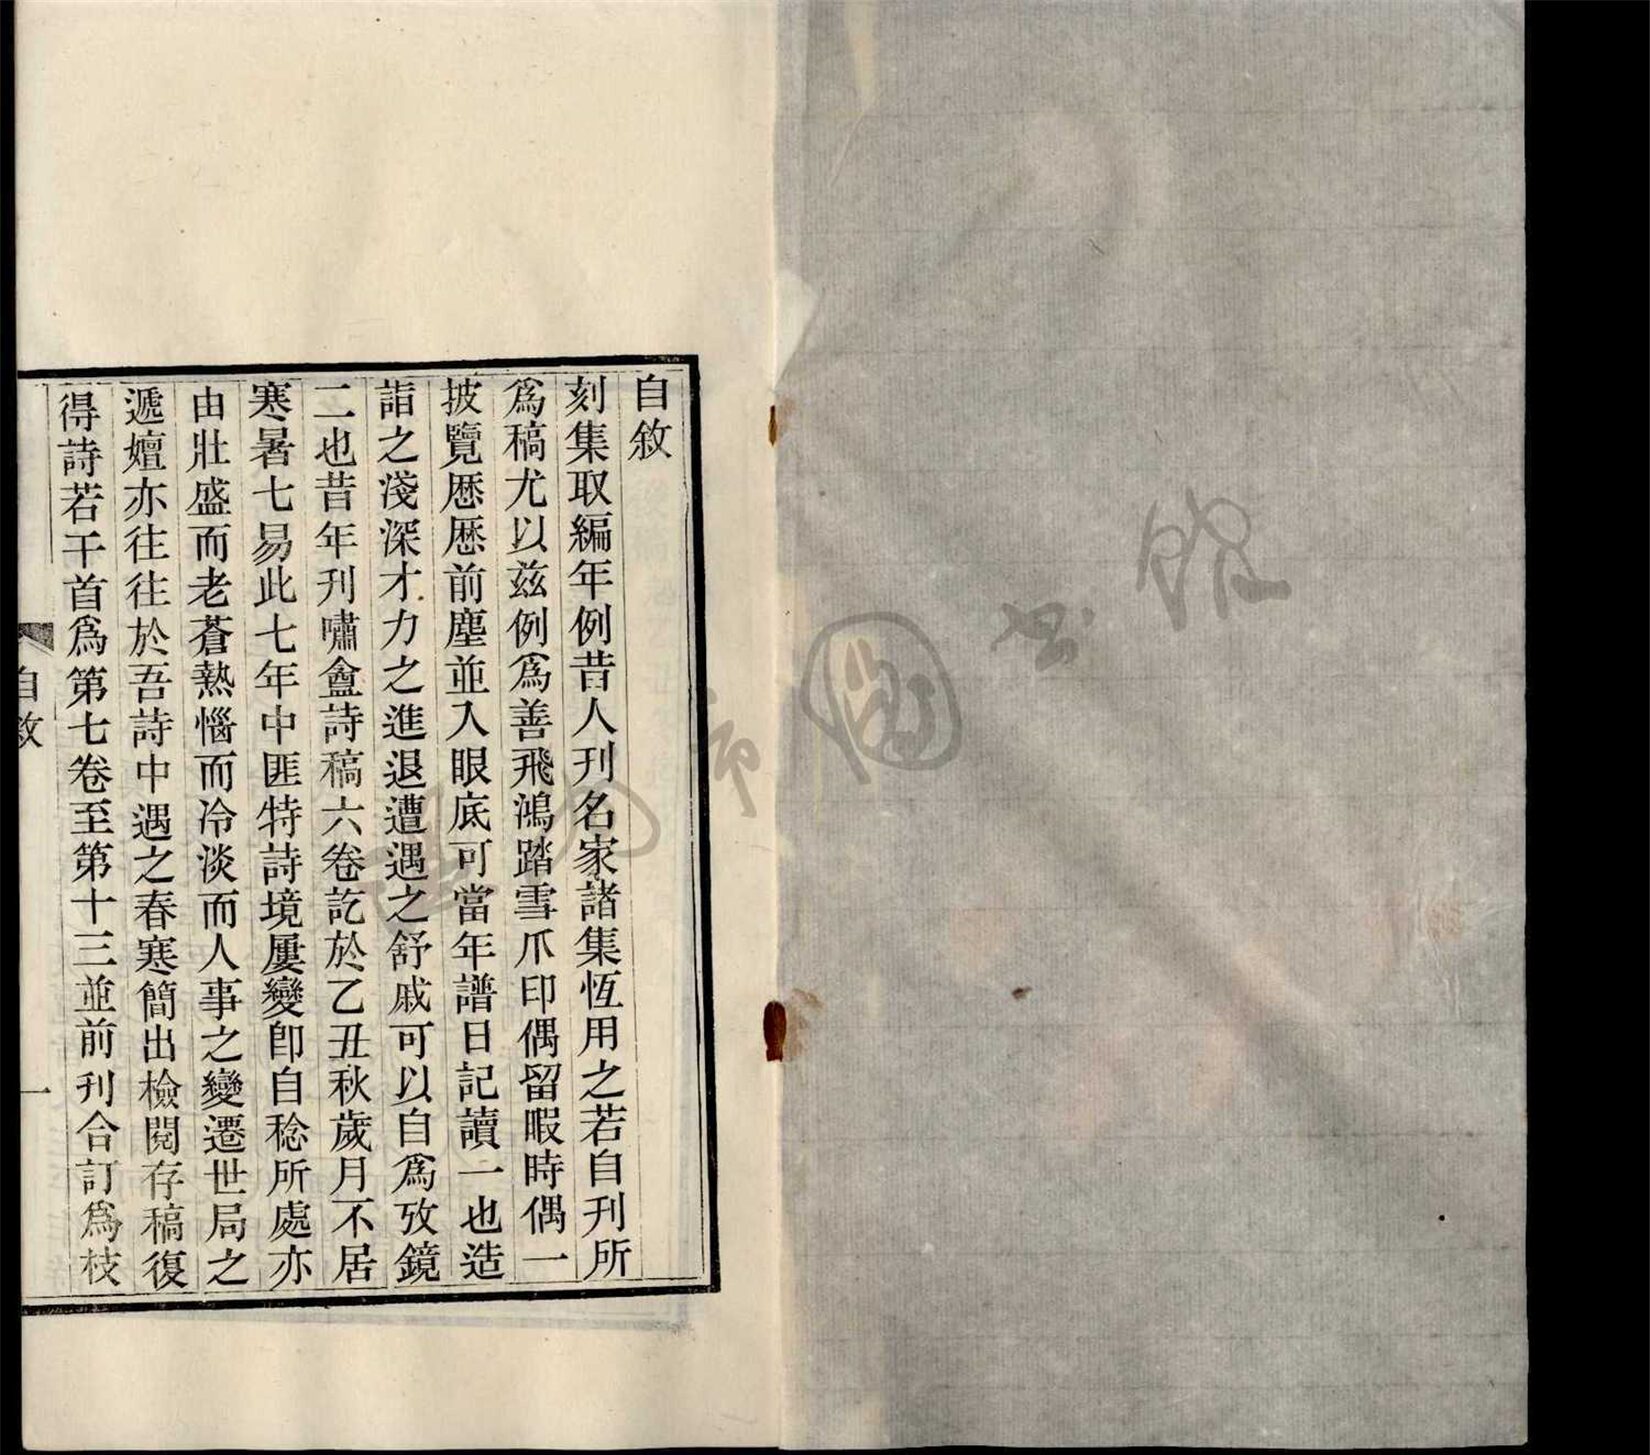 自敘
刻集取編年例昔人刊名家諸集恆用之若自刊所
爲稿尤以兹例爲善飛鴻踏雪爪印偶留暇時偶一
披覽歷歷前塵並入眼底可當年譜日記讀一也造
詣之淺深才力之進退遭遇之舒戚可以自爲攷鏡
二也昔年刊嘯盦詩稿六卷訖於乙丑秋歲月不居
寒暑七易此七年中匪特詩境屢變卽自稔所處亦
由壯盛而老蒼熱惱而冷淡而人事之變遷世局之
遞嬗亦往往於吾詩中遇之春寒簡出檢閱存稿復
得詩若干首爲第七卷至第十三並前刊合訂爲枝
自敘
一
市圖書館